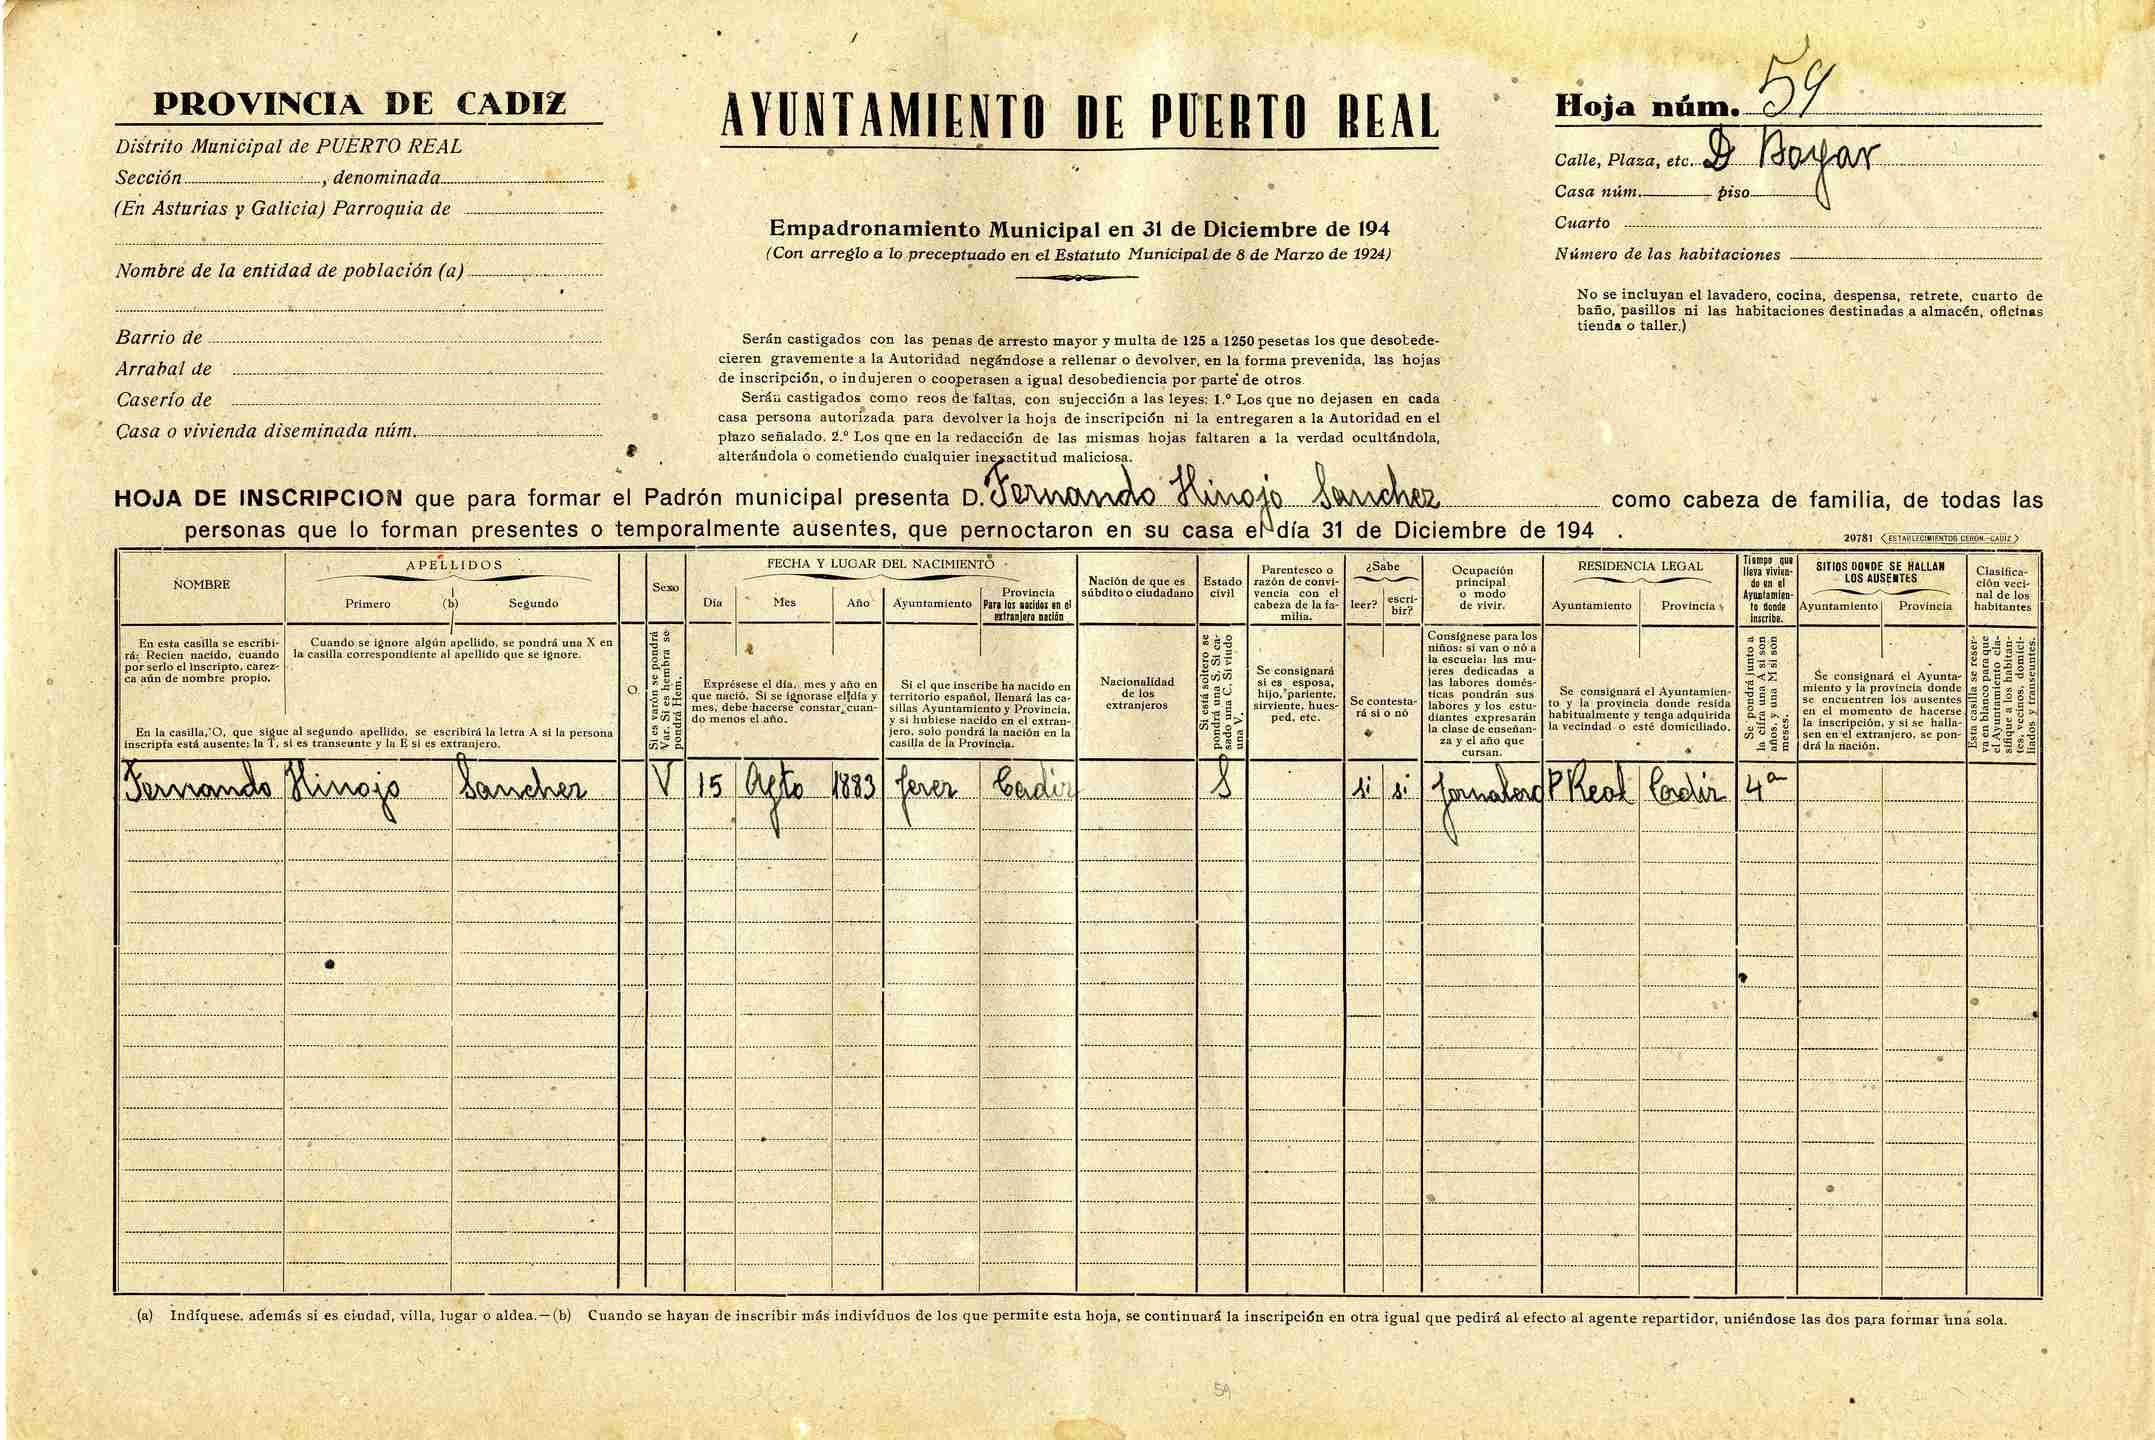 PROVINCIA DE CADIZ
Distrito Municipal de PUERTO REAL
Sección , denominada
(En Asturias y Galicia) Parroquia de
Nombre de la entidad de población (a)
Barrio de
Arrabal de
Caserío de
Casa o vivienda diseminada núm.
AYUNTAMIENTO DE PUERTO REAL
Empadronamiento Municipal en 31 de Diciembre de 194
(Con arreglo a lo preceptuado en el Estatuto Municipal de 8 de Marzo de 1924)
Serán castigados con las penas de arresto mayor y multa de 125 a 1250 pesetas los que desobede-
cieren gravemente a la Autoridad negándose a rellenar o devolver, en la forma prevenida, las hojas
de inscripción, o indujeren o cooperasen a igual desobediencia por parte de otros.
Serán castigados como reos de faltas, con sujección a las leyes: 1.º Los que no dejasen en cada
casa persona autorizada para devolver la hoja de inscripción ni la entregaren a la Autoridad en el
plazo señalado. 2.º Los que en la redacción de las mismas hojas faltaren a la verdad ocultándola,
alterándola o cometiendo cualquier inexactitud maliciosa.
Hoja núm. 59
Calle, Plaza, etc. D Boyar
Casa núm. piso
Cuarto
Número de las habitaciones
No se incluyan el lavadero, cocina, despensa, retrete, cuarto de
baño, pasillos ni las habitaciones destinadas a almacén, oficinas
tienda o taller.)
HOJA DE INSCRIPCION que para formar el Padrón municipal presenta D. Fernando Hinojo Sanchez como cabeza de familia, de todas las
personas que lo forman presentes o temporalmente ausentes, que pernoctaron en su casa el día 31 de Diciembre de 194 .
29781 (ESTABLECIMIENTOS CERON.-CADIZ)
NOMBRE
APELLIDOS
Primero (b) Segundo
O
Sexo
FECHA Y LUGAR DEL NACIMIENTO
Día Mes Año Ayuntamiento
Provincia
Para los nacidos en el
extranjero nación
Nación de que es
súbdito o ciudadano
Estado
civil
Parentesco o
razón de convi-
vencia con el
cabeza de la fa-
milia.
¿Sabe
leer? escri-
bir?
Ocupación
principal
o modo
de vivir.
RESIDENCIA LEGAL
Ayuntamiento Provincia
Tiempo que
lleva vivien-
do en el
Ayuntamien-
to donde
inscribe.
SITIOS DONDE SE HALLAN
LOS AUSENTES
Ayuntamiento Provincia
Clasifica-
ción veci-
nal de los
habitantes
En esta casilla se escribi-
rá: Recien nacido, cuando
por serlo el inscripto, carez-
ca aún de nombre propio.
Cuando se ignore algún apellido, se pondrá una X en
la casilla correspondiente al apellido que se ignore.
En la casilla, O, que sigue al segundo apellido, se escribirá la letra A si la persona
inscripta está ausente; la T, si es transeunte y la E si es extranjero.
Si es varón se pondrá
Var. Si es hembra se
pondrá Hem.
Exprésese el día, mes y año en
que nació. Si se ignorase el día y
mes, debe hacerse constar, cuan-
do menos el año.
Si el que inscribe ha nacido en
territorio español, llenará las ca-
sillas Ayuntamiento y Provincia,
y si hubiese nacido en el extran-
jero, solo pondrá la nación en la
casilla de la Provincia.
Nacionalidad
de los
extranjeros
Si está soltero se
pondrá una S. Si ca-
sado una C. Si viudo
una V.
Se consignará
si es esposa,
hijo, pariente,
sirviente, hues-
ped, etc.
Se contesta-
rá si o nó
Consígnese para los
niños: si van o nó a
la escuela: las mu-
jeres dedicadas a
las labores domés-
ticas pondrán sus
labores y los estu-
diantes expresarán
la clase de enseñan-
za y el año que
cursan.
Se consignará el Ayuntamien-
to y la provincia donde resida
habitualmente y tenga adquirida
la vecindad o esté domiciliado.
Se pondrá junto a
la cifra una A si son
años, y una M si son
meses.
Se consignará el Ayunta-
miento y la provincia donde
se encuentren los ausentes
en el momento de hacerse
la inscripción, y si se halla-
sen en el extranjero, se pon-
drá la nación.
Esta casilla se reser-
va en blanco para que
el Ayuntamiento cla-
sifique a los habitan-
tes, vecinos, domici-
liados y transeuntes.
Fernando Hinojo Sanchez V 15 Agto 1883 Jerez Cadiz S si si Jornalero P Real Cadiz 4a
(a) Indíquese. además si es ciudad, villa, lugar o aldea.—(b) Cuando se hayan de inscribir más indivíduos de los que permite esta hoja, se continuará la inscripción en otra igual que pedirá al efecto al agente repartidor, uniéndose las dos para formar una sola.
59